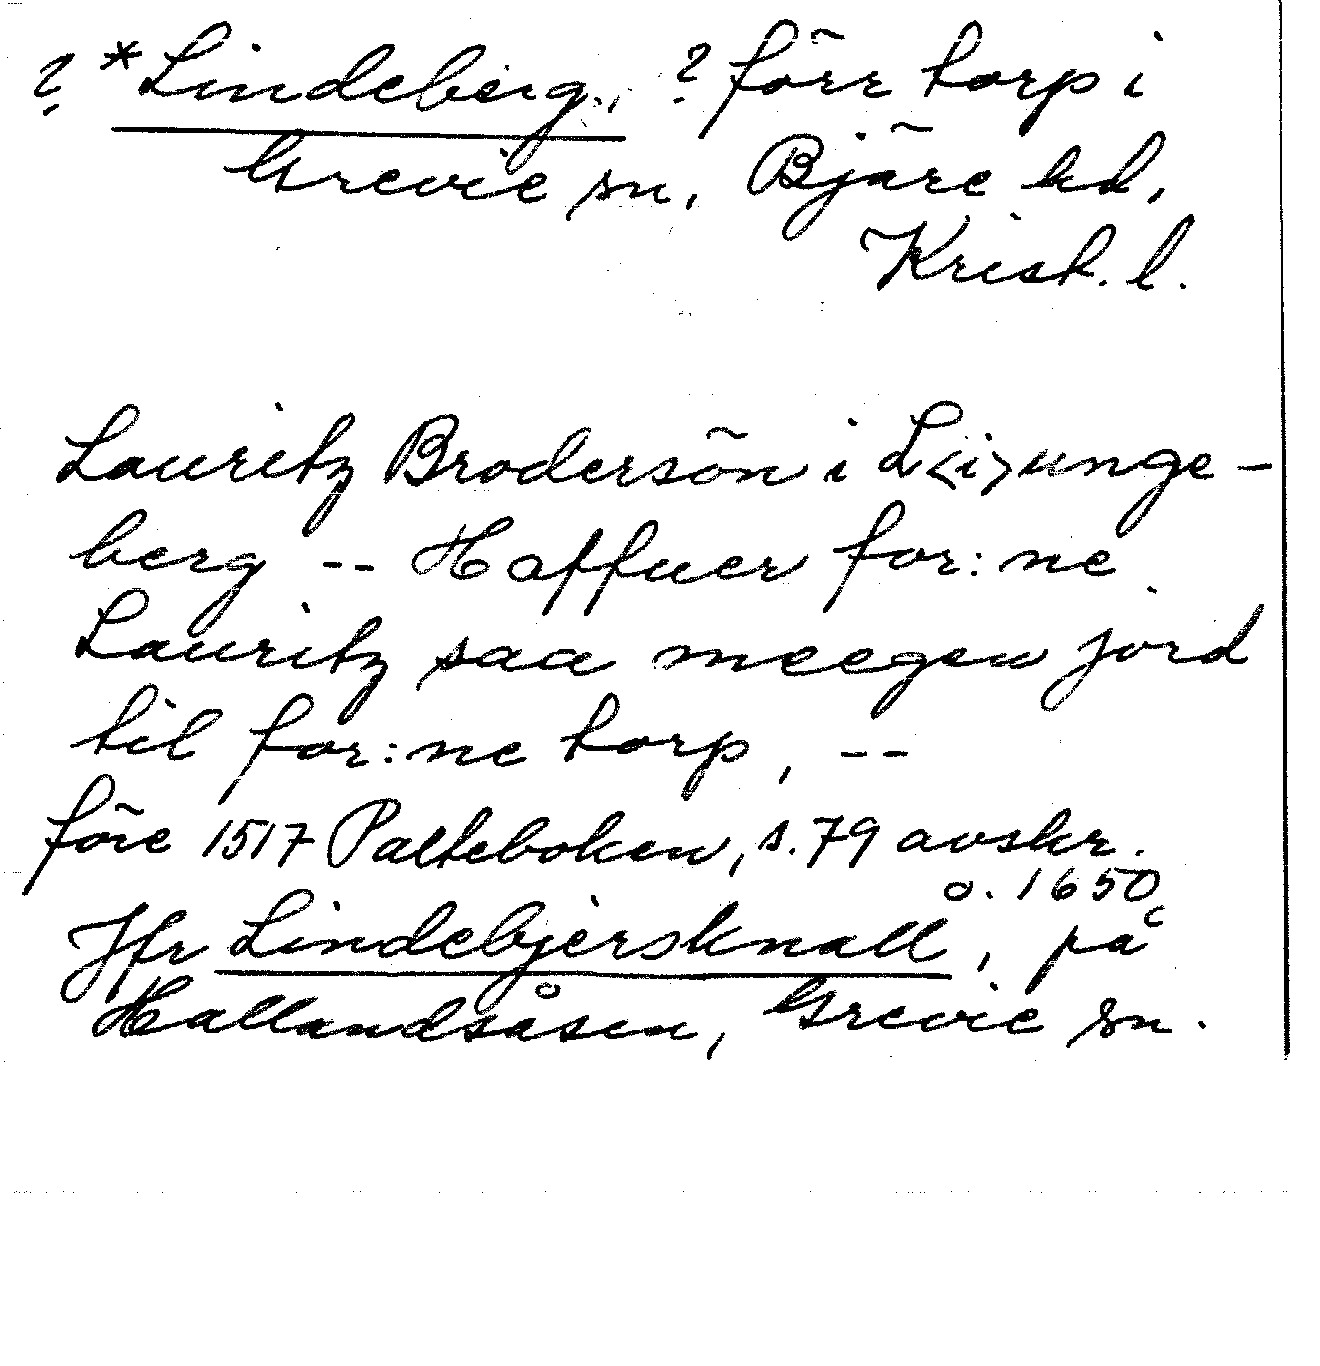 ? *Lindeberg, ? förr torp i
Grevie sn, Bjäre hd,
Krist. l.
Lauritz Brodersön i L<i>unge-
berg -- Haffuer for:ne
Lauritz saa meegen jord
til for:ne torp, --
före 1517 Palteboken, s. 79 avskr.
o. 1650
Jfr Lindebjersknall, på
Hallandsåsen, Grevie sn.